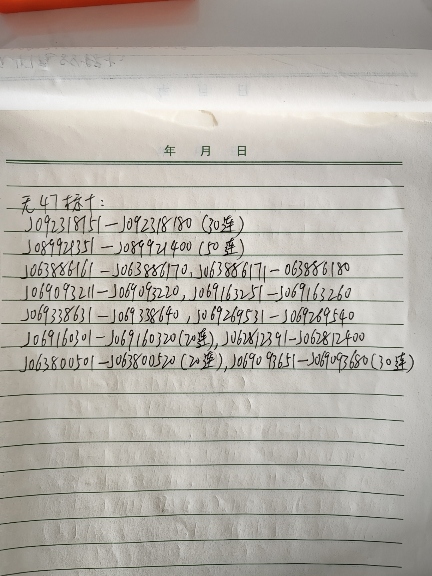 年 月 日
无47标十:
J092318151-J092318180(30连)
J089921351-J089921400(50连)
J063886161-J063886170, J063886171-063886180
J069093211-J069093220, J069163251-J069163260
J069338631-J069338640, J069269531-J069269540
J069160301-J069160320(20连), J062812391-J062812400
J063800501-J063800520(20连), J069093651-J069093680(30连)